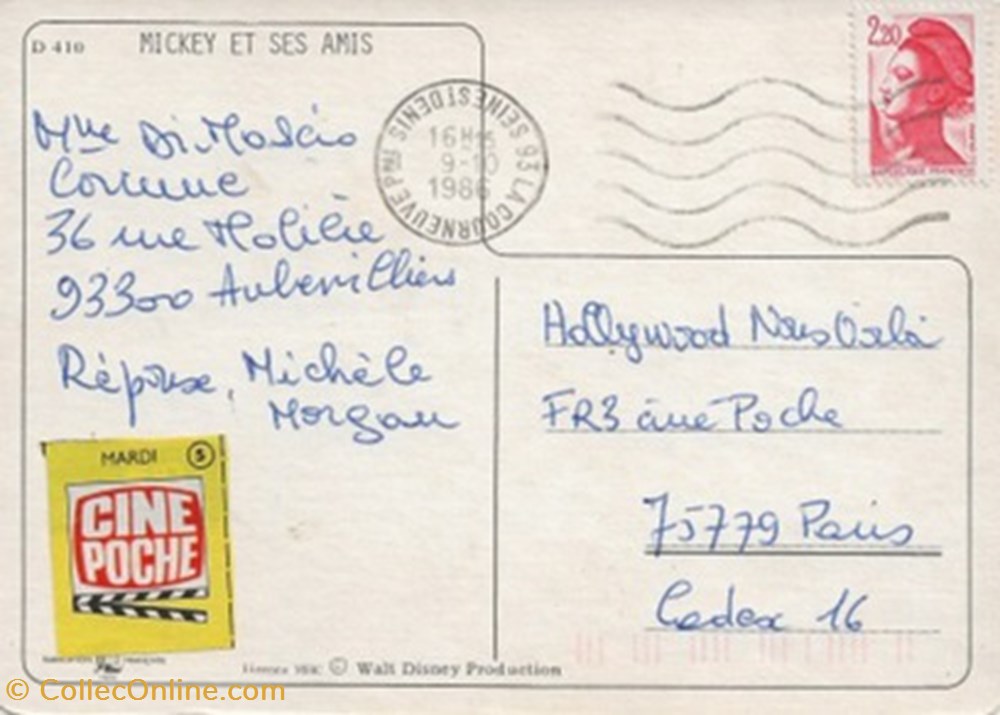 D 410 MICKEY ET SES AMIS
2,20
REPUBLIQUE FRANÇAISE
93 LA COURNEUVE PPAL
SEINE ST DENIS
16H15
9-10
1986
Mme Di Mascio
Corinne
36 rue Molière
93300 Aubervilliers
Réponse, Michèle
Morgan
Hollywood Nous Voilà
FR3 Ciné Poche
75779 Paris
Cedex 16
MARDI 5
CINE
POCHE
FRANÇAISE
Licence © Walt Disney Production
© CollecOnline.com